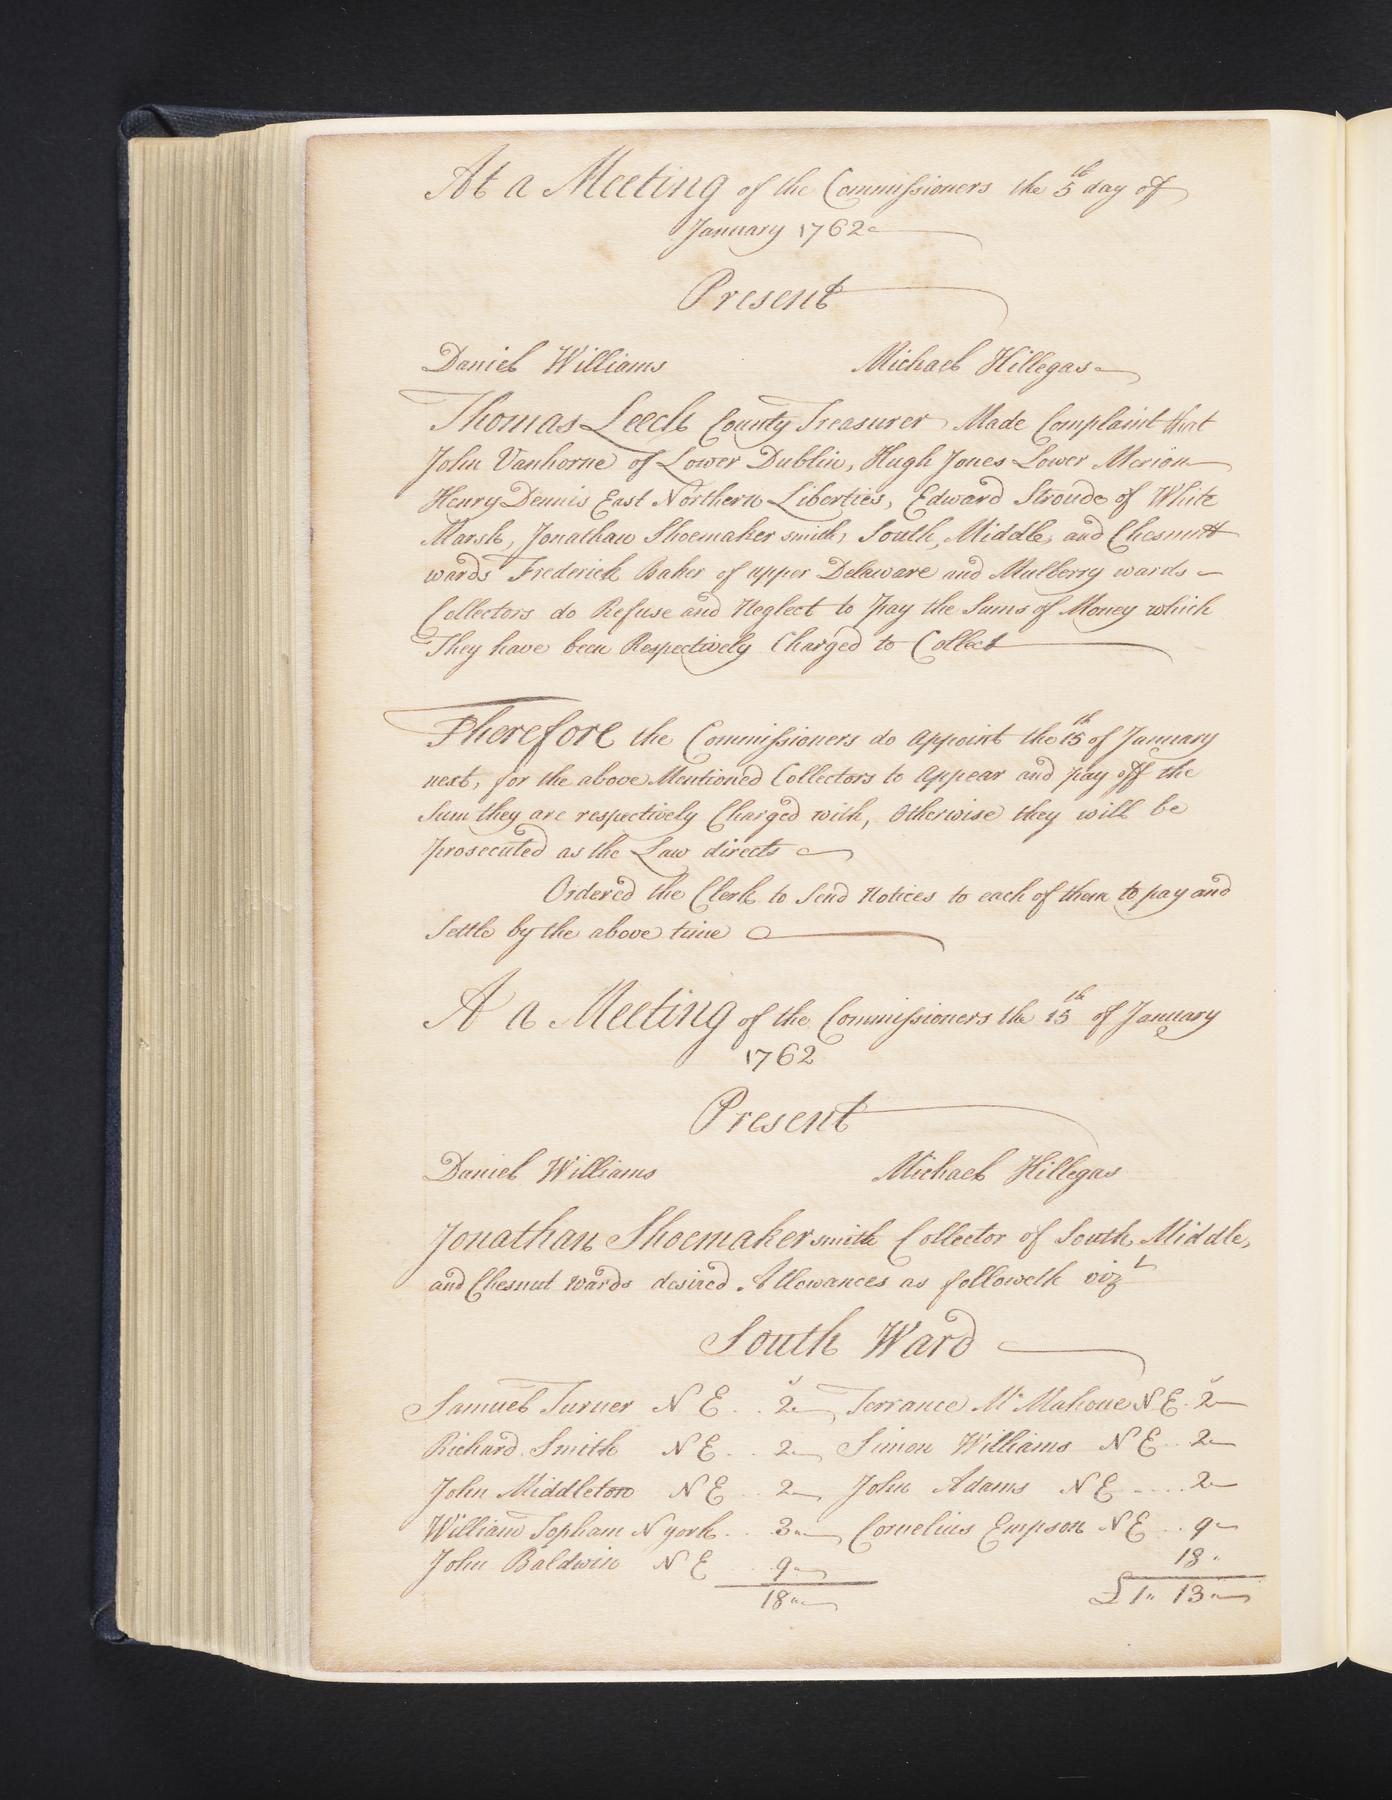 At a Meeting of the Commissioners the 5th day of
January 1762
Present
Daniel Williams Michael Hillegas
Thomas Leech County Treasurer Made Complaint that
John Vanhorne of Lower Dublin, Hugh Jones Lower Merion
Henry Dennis East Northern Liberties, Edward Stroude of White
Marsh, Jonathan Shoemaker smith, South, Middle, and Chesnutt
wards Frederick Baker of upper Delaware and Mulberry wards
Collectors do Refuse and Neglect to pay the Sums of Money which
They have been Respectively Charged to Collect
Therefore the Commissioners do appoint the 15th of January
next, for the above Mentioned Collectors to appear and pay off the
Sum they are respectively Charged with, Otherwise they will be
prosecuted as the Law directs
Ordered the Clerk to Send Notices to each of them to pay and
Settle by the above time
A a Meeting of the Commissioners the 15th of January
1762
Present
Daniel Williams Michael Hillegas
Jonathan Shoemaker smith Collector of South, Middle,
and Chesnut wards desired Allowances as followeth vizt
South Ward
Samuel Turner N E .. 2 Terrance McMahone N E . 2
Richard Smith N E .. 2 Simon Williams N E .. 2
John Middleton N E .. 2 John Adams N E .... 2
William Topham N york .. 3 Cornelius Empson N E .. 9
John Baldwin N E .. 9 18
18 £ 1 " 13